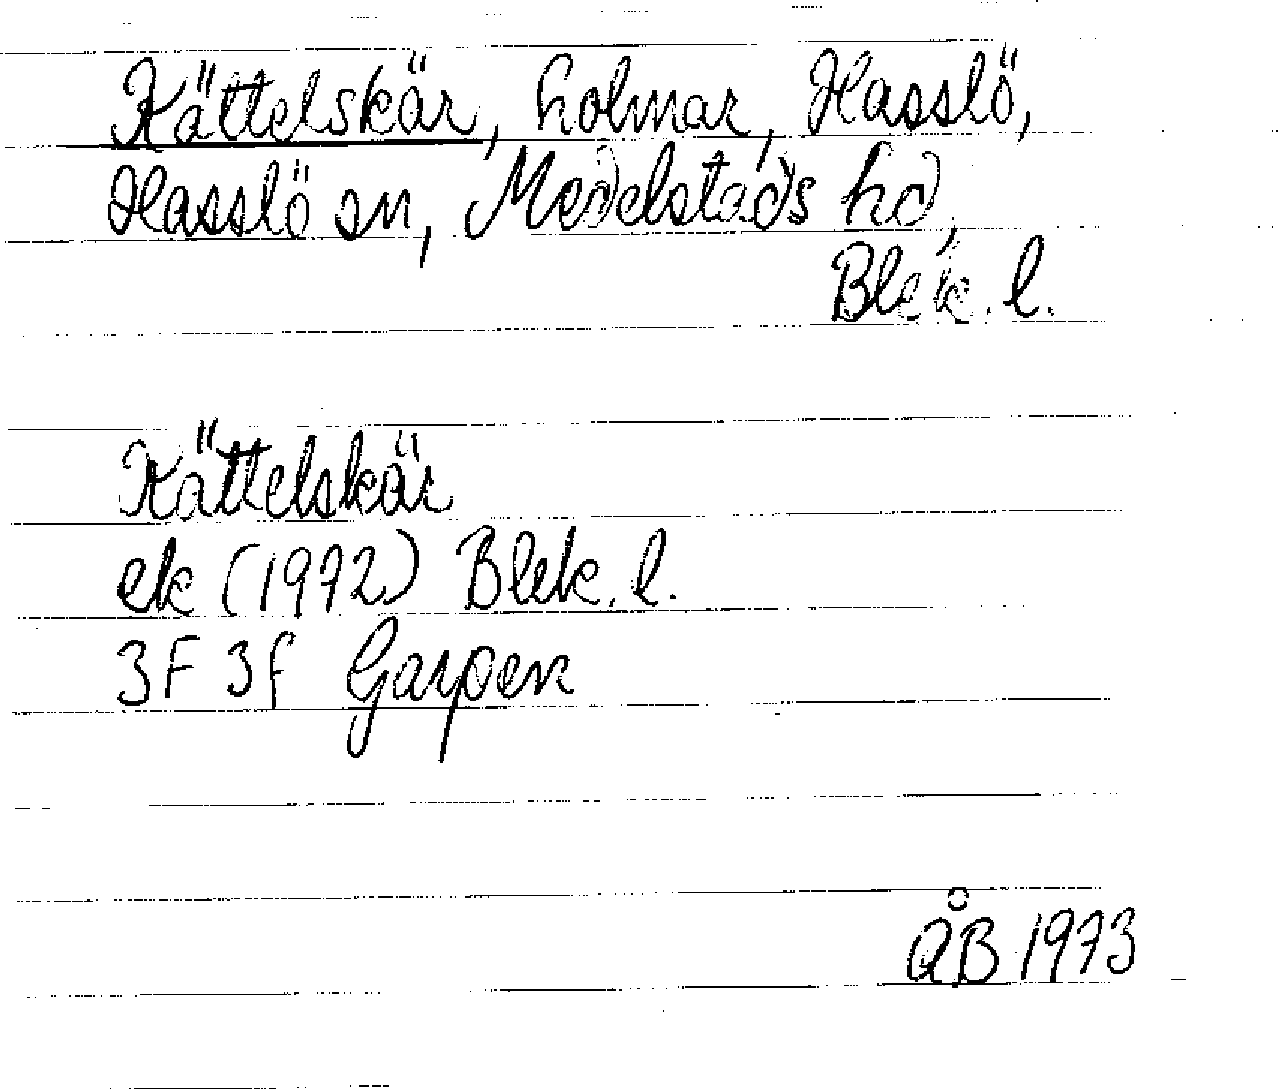 Kättelskär, holmar, Hasslö,
Hasslö sn, Medelstads hd,
Blek. l.
Kättelskär
ek (1972) Blek. l.
3F 3f Garpen
ÅB 1973